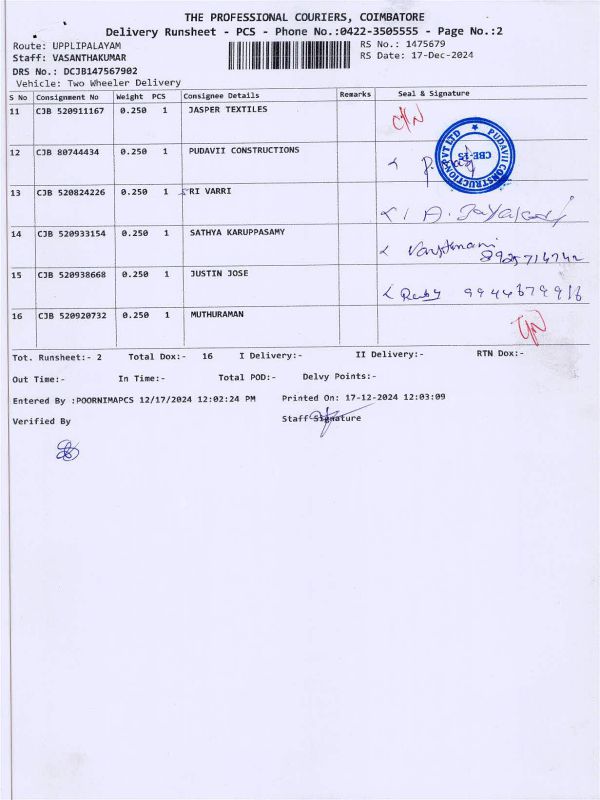 THE PROFESSIONAL COURIERS, COIMBATORE
Delivery Runsheet - PCS - Phone No.:0422-3505555 - Page No.:2
Route: UPPLIPALAYAM RS No.: 1475679
Staff: VASANTHAKUMAR RS Date: 17-Dec-2024
DRS No.: DCJB147567902
Vehicle: Two Wheeler Delivery
S No Consignment No Weight PCS Consignee Details Remarks Seal & Signature
11 CJB 520911167 0.250 1 JASPER TEXTILES
12 CJB 80744434 0.250 1 PUDAVII CONSTRUCTIONS
PUDAVII CONSTRUCTION PVT LTD
CBE-15
13 CJB 520824226 0.250 1 SRI VARRI
14 CJB 520933154 0.250 1 SATHYA KARUPPASAMY
8925714742
15 CJB 520938668 0.250 1 JUSTIN JOSE
9944679916
16 CJB 520920732 0.250 1 MUTHURAMAN
Tot. Runsheet:- 2 Total Dox:- 16 I Delivery:- II Delivery:- RTN Dox:-
Out Time:- In Time:- Total POD:- Delvy Points:-
Entered By :POORNIMAPCS 12/17/2024 12:02:24 PM Printed On: 17-12-2024 12:03:09
Verified By Staff Signature